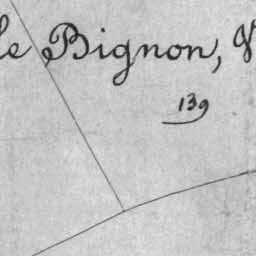 le Bignon, V
139